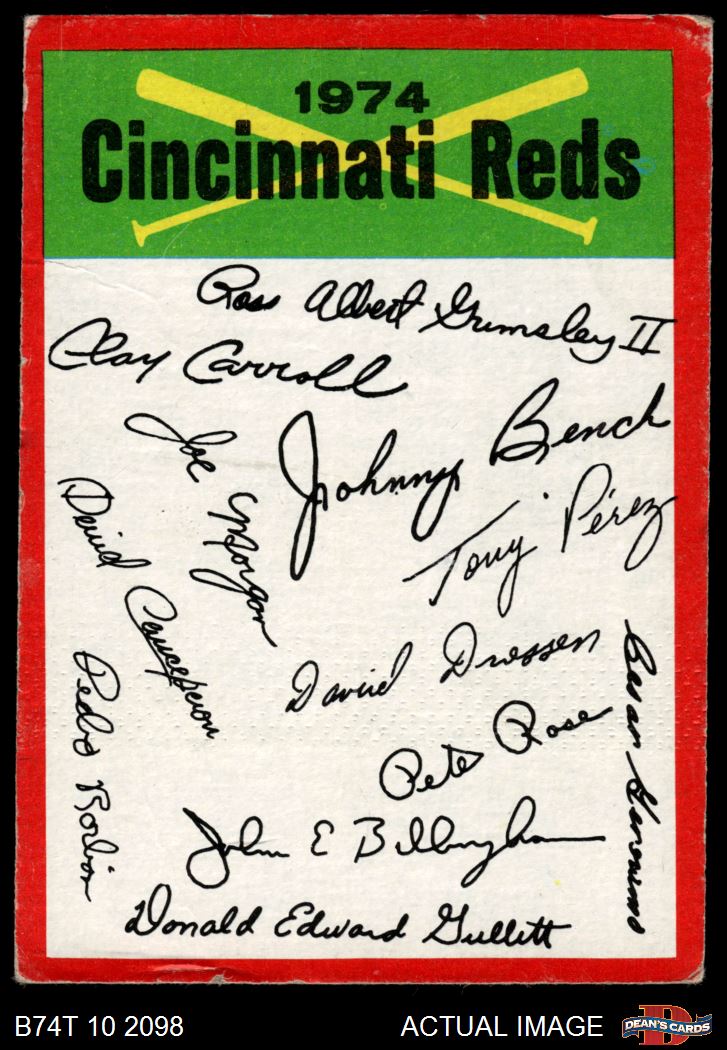 1974
Cincinnati Reds
Ross Albert Grimsley II
Clay Carroll
Johnny Bench
Joe Morgan
Tony Pérez
David Concepcion
David Driessen
Pete Rose
Cesar Geronimo
Pedro Borbon
John E Billingham
Donald Edward Gullett
B74T 10 2098
ACTUAL IMAGE
D
DEAN'S CARDS